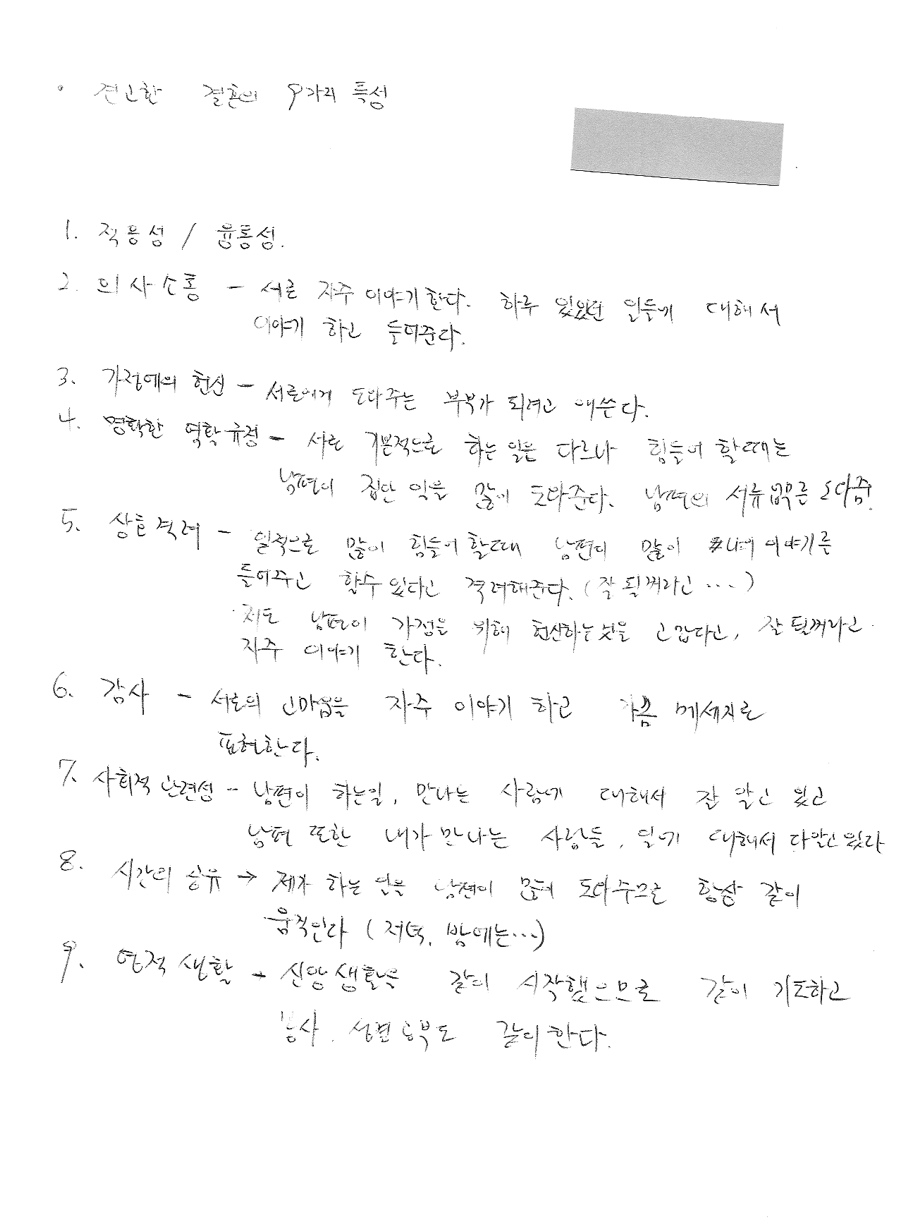 • 견고한 결혼의 9가지 특성
1. 적응성 / 융통성.
2. 의사소통 - 서로 자주 이야기한다. 하루 있었던 일들에 대해서
이야기 하고 들어준다.
3. 가정에의 헌신 - 서로에게 도와주는 부부가 되려고 애쓴다.
4. 명확한 역학규정 - 서로 기본적으로 하는 일은 다르나 힘들어 할때는
남편이 집안 일을 많이 도와준다. 남편의 서류 업무를 도와줌.
5. 상호격려 - 일적으로 많이 힘들어 할때 남편이 많이 나의 이야기를
들어주고 할수 있다고 격려해준다. (잘 될꺼라고 ...)
저도 남편이 가정을 위해 헌신하는 것을 고맙다고, 잘 될꺼라고
자주 이야기 한다.
6. 감사 - 서로의 고마움을 자주 이야기 하고 가끔 메세지로
표현한다.
7. 사회적 관련성 - 남편이 하는일, 만나는 사람에 대해서 잘 알고 있고
남편 또한 내가 만나는 사람들, 일에 대해서 다알고 있다
8. 시간의 공유 → 제가 하는 일을 남편이 많이 도와주므로 항상 같이
움직인다 (저녁, 밤에는...)
9. 영적 생활 - 신앙생활을 같이 시작했으므로 같이 기도하고
봉사, 성경공부도 같이 한다.